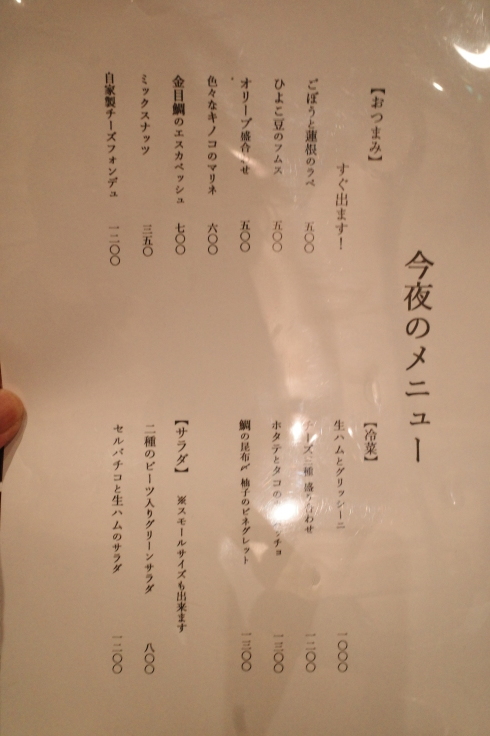 今夜のメニュー
【おつまみ】
すぐ出ます！
ごぼうと蓮根のラペ 五〇〇
ひよこ豆のフムス 五〇〇
オリーブ盛合わせ 五〇〇
色々なキノコのマリネ 六〇〇
金目鯛のエスカベッシュ 七〇〇
ミックスナッツ 三五〇
自家製チーズフォンデュ 一二〇〇
【冷菜】
生ハムとグリッシーニ 一〇〇〇
チーズ三種 盛り合わせ 一二〇〇
ホタテとタコの 一三〇〇
鯛の昆布〆 柚子のビネグレット 一三〇〇
【サラダ】 ※スモールサイズも出来ます
二種のビーツ入りグリーンサラダ 八〇〇
セルバチコと生ハムのサラダ 一二〇〇